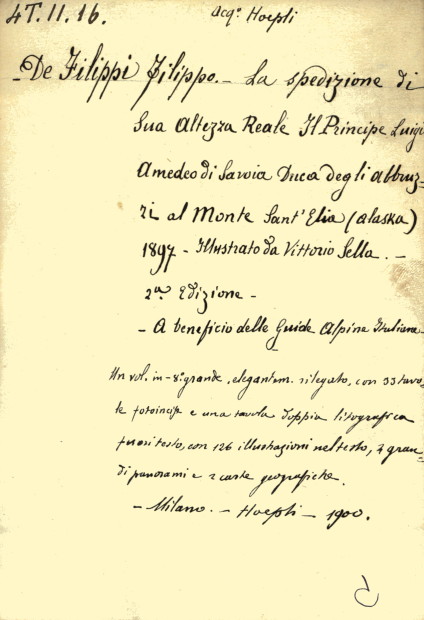 4T. II. 16. Acq.º Hoepli
- De Filippi Filippo. - La spedizione di
Sua Altezza Reale Il Principe Luigi
Amedeo di Savoia Duca degli Abbruz-
zi al Monte Sant'Elia (Alaska)
1897 - Illustrato da Vittorio Sella. -
2ª Edizione -
- A beneficio delle Guide Alpine Italiane -
Un vol. in-8° grande, elegantem. rilegato, con 33 tavo-
le fotoincise e una tavola doppia litografica
fuori testo, con 126 illustrazioni nel testo, 4 gran-
di panorami e 2 carte geografiche.
- Milano. - Hoepli - 1900.